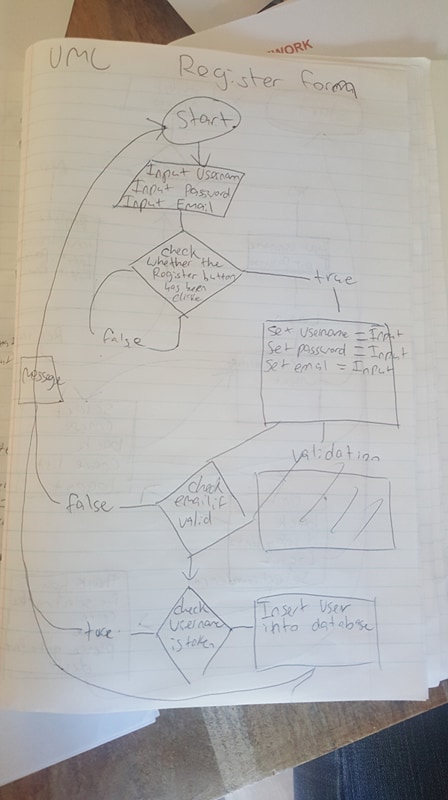 WORK
UML
Register Form
Start
Input Usernam
Input Password
Input Email
check
whether the
Register button
has been
true
false
Set username = Input
Set password = Input
Set email = Input
message
validation
check
email if
valid
false
check
username
is taken
true
Insert User
into database